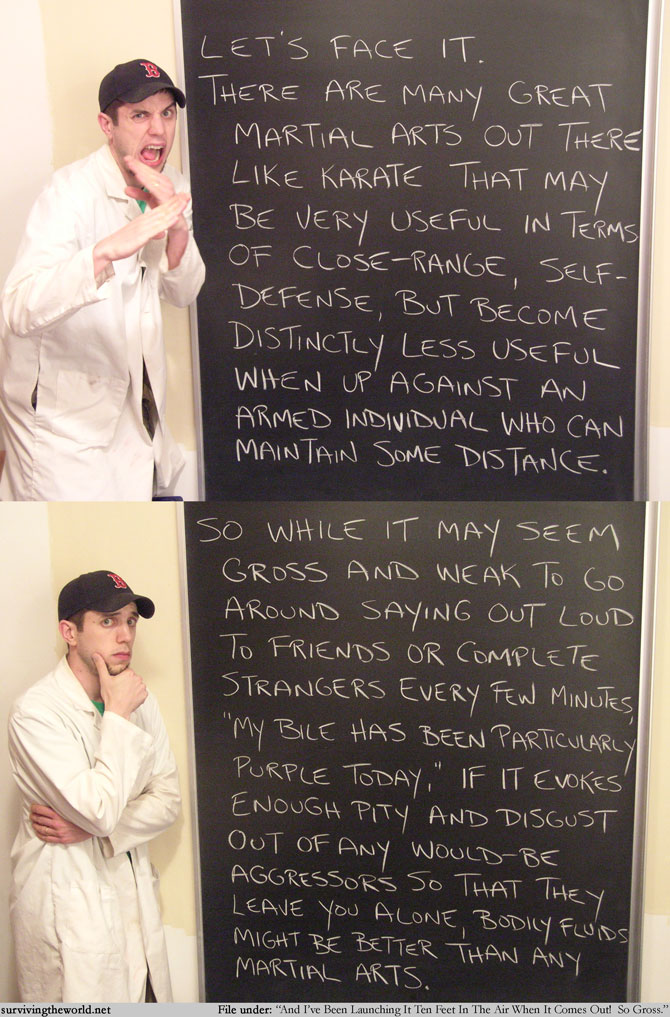 LET'S FACE IT.
THERE ARE MANY GREAT
MARTIAL ARTS OUT THERE
LIKE KARATE THAT MAY
BE VERY USEFUL IN TERMS
OF CLOSE-RANGE, SELF-
DEFENSE, BUT BECOME
DISTINCTLY LESS USEFUL
WHEN UP AGAINST AN
ARMED INDIVIDUAL WHO CAN
MAINTAIN SOME DISTANCE.
SO WHILE IT MAY SEEM
GROSS AND WEAK TO GO
AROUND SAYING OUT LOUD
TO FRIENDS OR COMPLETE
STRANGERS EVERY FEW MINUTES,
"MY BILE HAS BEEN PARTICULARLY
PURPLE TODAY," IF IT EVOKES
ENOUGH PITY AND DISGUST
OUT OF ANY WOULD-BE
AGGRESSORS SO THAT THEY
LEAVE YOU ALONE, BODILY FLUIDS
MIGHT BE BETTER THAN ANY
MARTIAL ARTS.
survivingtheworld.net File under: "And I've Been Launching It Ten Feet In The Air When It Comes Out! So Gross."
B
B